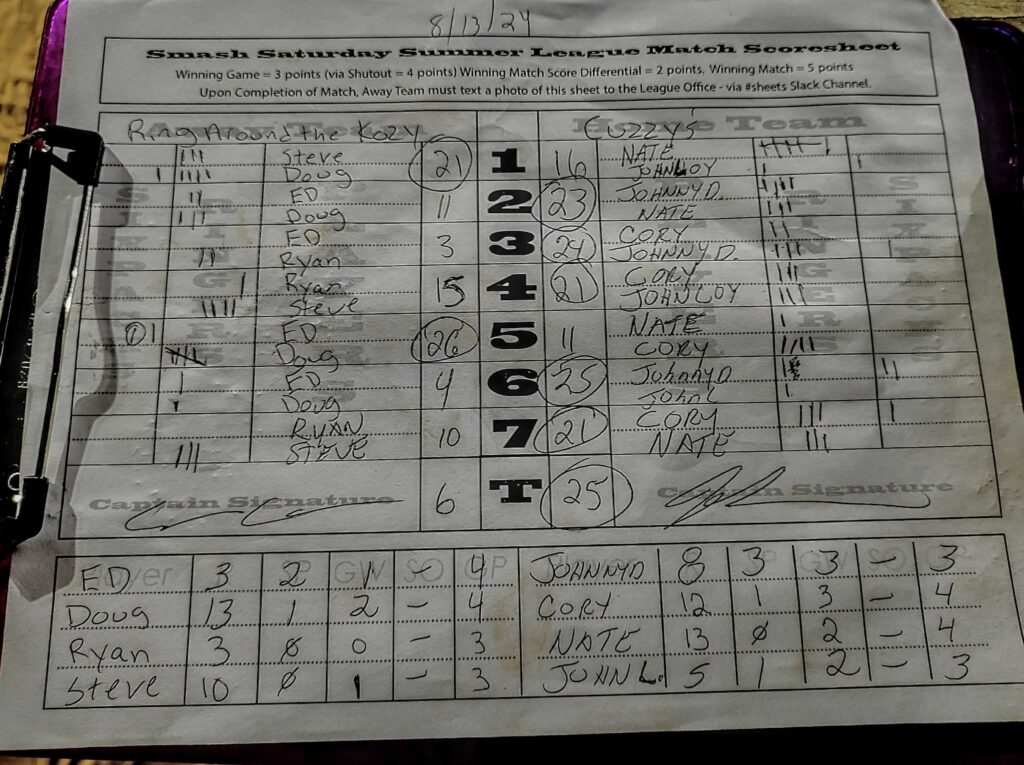 8/13/24
Smash Saturday Summer League Match Scoresheet
Winning Game = 3 points (via Shutout = 4 points) Winning Match Score Differential = 2 points, Winning Match = 5 points
Upon Completion of Match, Away Team must text a photo of this sheet to the League Office - via #sheets Slack Channel.
Ring Around the Kozy Home Team
Steve 21 1 16 NATE
Doug JOHN LOY
ED 11 2 23 JOHNNY D.
Doug NATE
ED 3 3 24 CORY
Ryan JOHNNY D.
Ryan 15 4 21 CORY
Steve JOHN LOY
ED 26 5 11 NATE
Doug CORY
ED 4 6 25 Johnny D
Doug John L
RYAN 10 7 21 CORY
STEVE NATE
Captain Signature 6 T 25 Captain Signature
ED 3 2 1 - 4 JOHNNYD 8 3 3 - 3
Doug 13 1 2 - 4 CORY 12 1 3 - 4
Ryan 3 0 0 - 3 NATE 13 0 2 - 4
Steve 10 0 1 - 3 JOHN L. 5 1 2 - 3